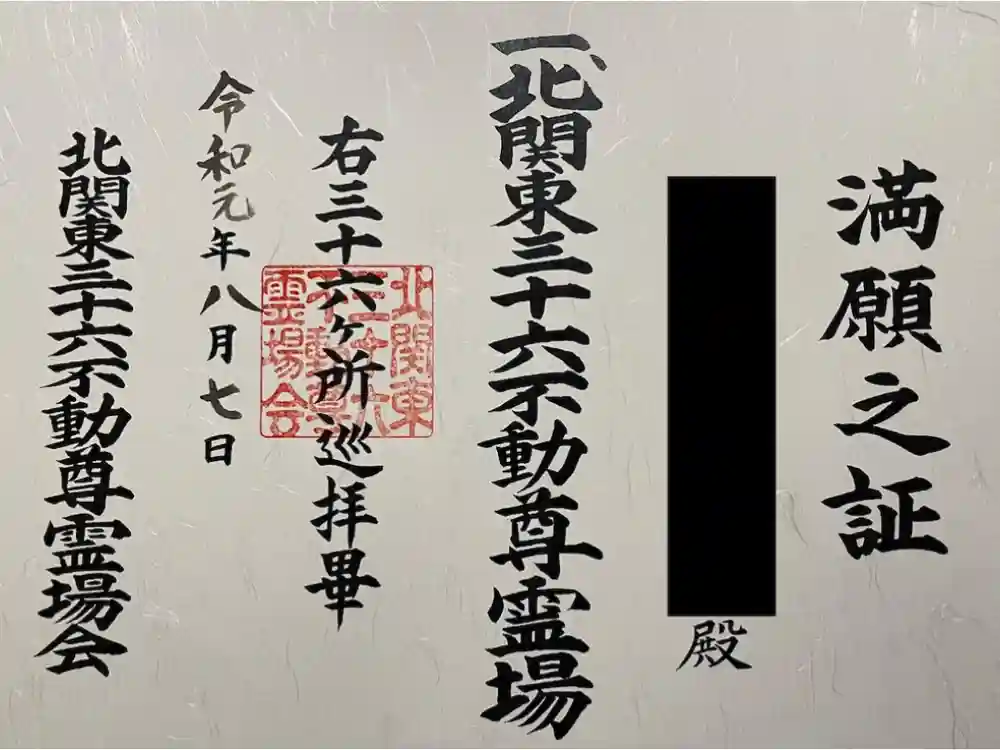 満願之証
殿
一、北関東三十六不動尊霊場
右三十六ヶ所巡拝畢
令和元年八月七日
北関東三十六不動尊霊場会
北関東
三十六
不動尊
霊場会